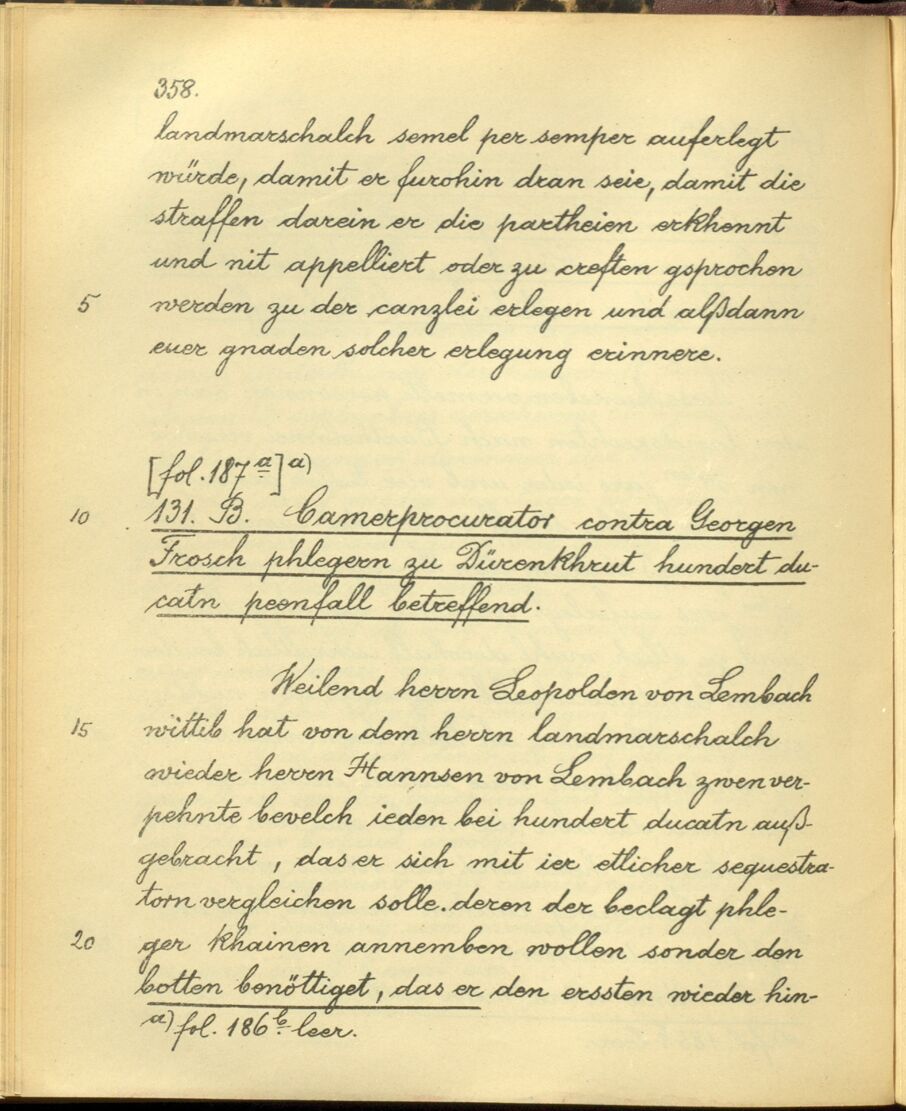 358.
landmarschalch semel per semper auferlegt
würde, damit er furohin dran seie, damit die
straffen darein er die partheien erkhennt
und nit appelliert oder zu creften gsprochen
5 werden zu der canzlei erlegen und alßdann
euer gnaden solcher erlegung erinnere.
[fol. 187 a] a)
10 131. B. Camerprocurator contra Georgen
Frosch phlegern zu Dürenkhrut hundert du-
catn peenfall betreffend.
Weilend herrn Leopolden von Lembach
15 wittib hat von dem herrn landmarschalch
wieder herrn Hannsen von Lembach zwen ver-
pehnte bevelch ieden bei hundert ducatn auß-
gebracht, das er sich mit ier etlicher sequestra-
torn vergleichen solle. deren der beclagt phle-
20 ger khainen annemben wollen sonder den
botten benöttiget, das er den erssten wieder hin-
a) fol. 186 b leer.